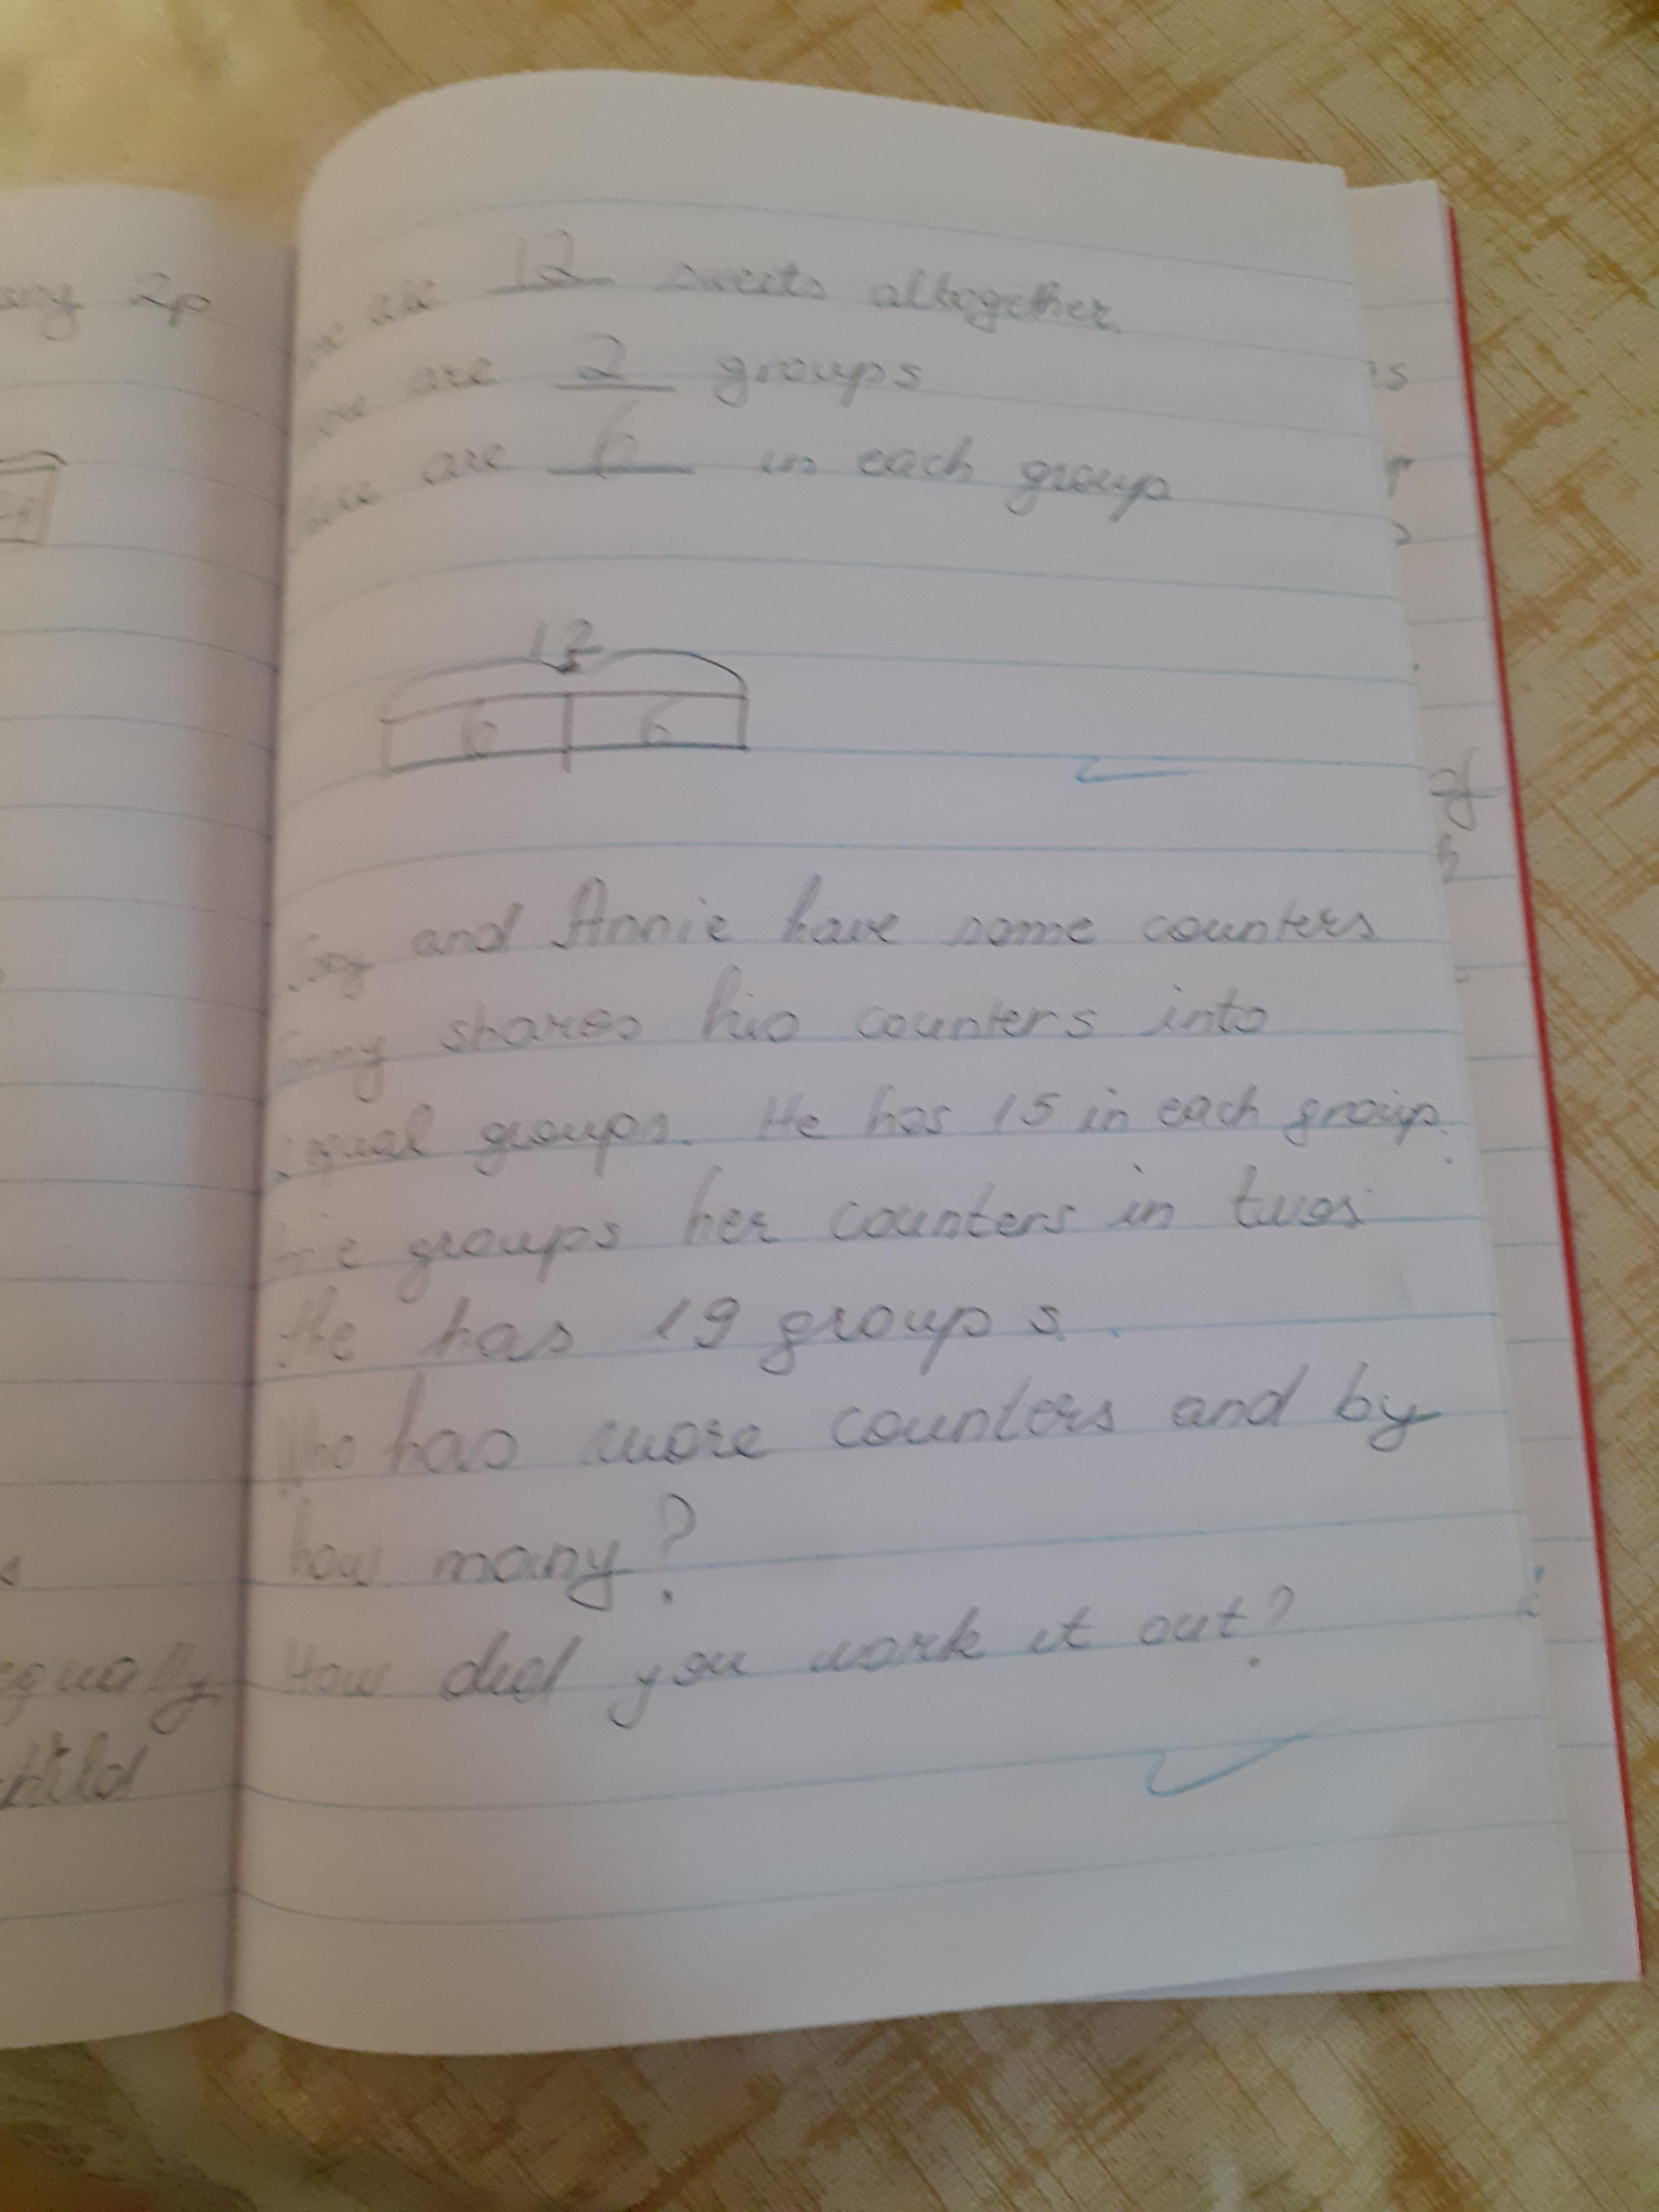 any 2p
are 12 sweets altogether.
are 2 groups
There are 6 in each group
12
6 6
and Annie have some counters
Tommy shares his counters into
2 equal groups. He has 15 in each group.
Annie groups her counters in twos
He has 19 groups.
Who has more counters and by
how many?
equally
How did you work it out?
child
of